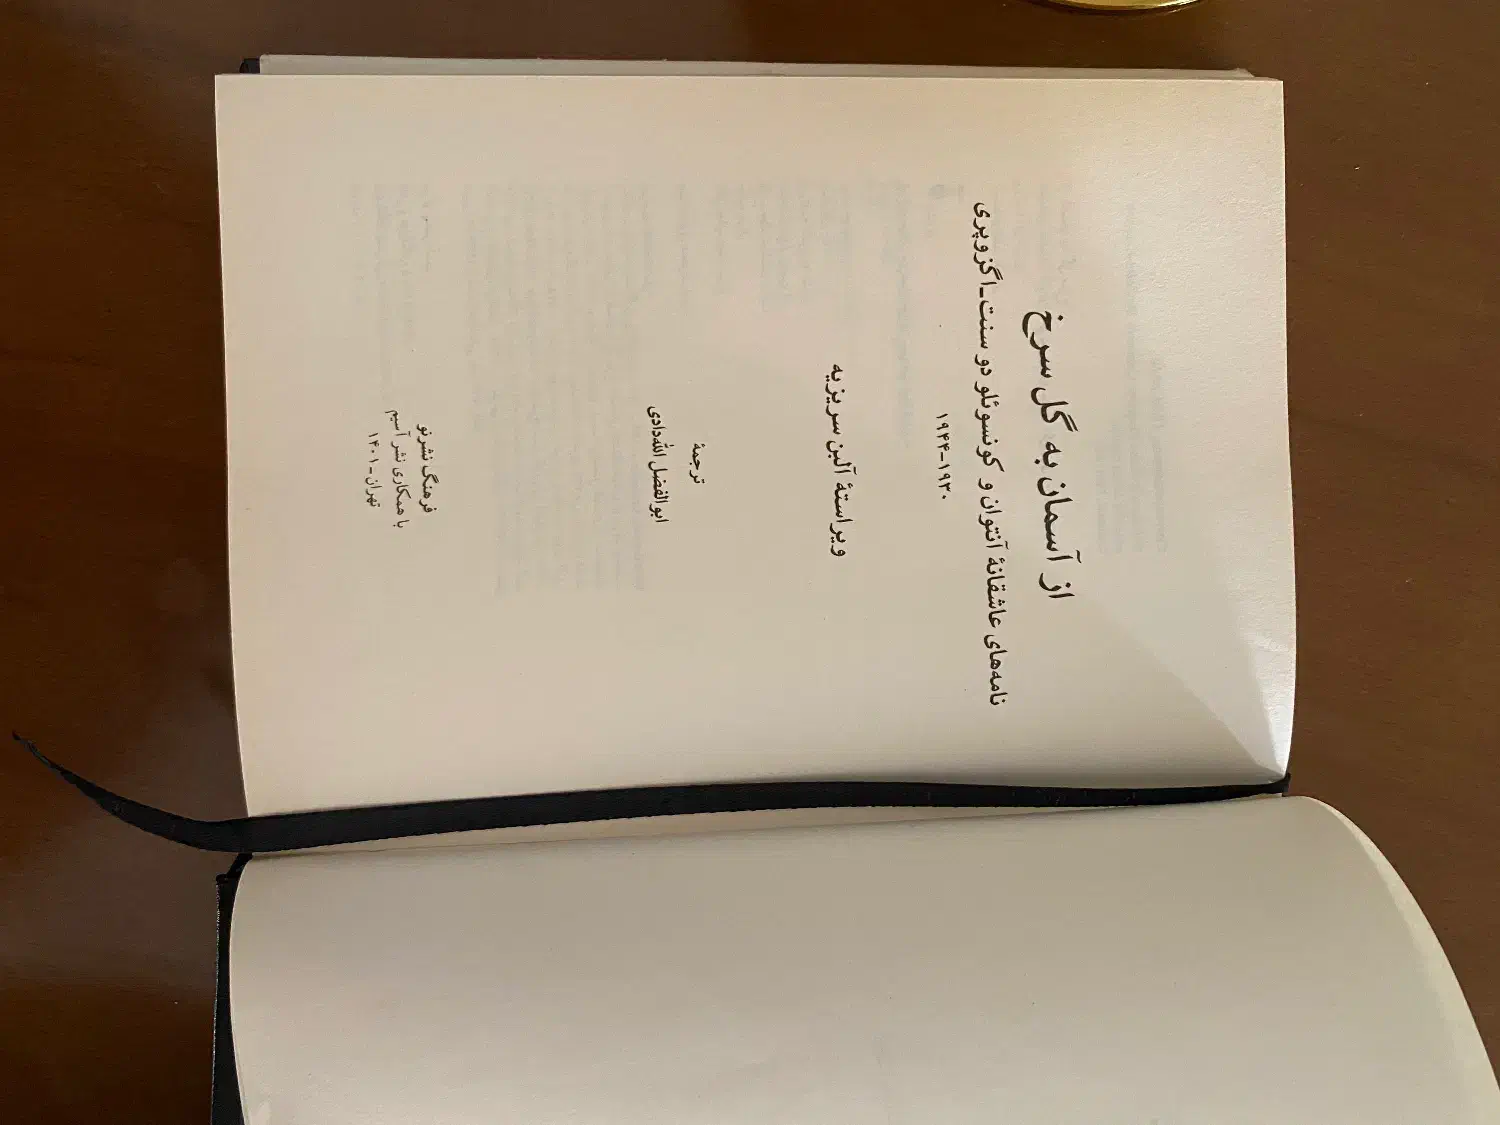 از آسمان به گل سرخ
نامه‌های عاشقانهٔ آنتوان و کونسوئلو دو سنت‌ـ‌اگزوپری
۱۹۳۰–۱۹۴۴
ویراستهٔ آلبن سریزیه
ترجمهٔ
ابوالفضل الله‌دادی
فرهنگ نشرنو
با همکاری نشر آسیم
تهران ـ ۱۴۰۱